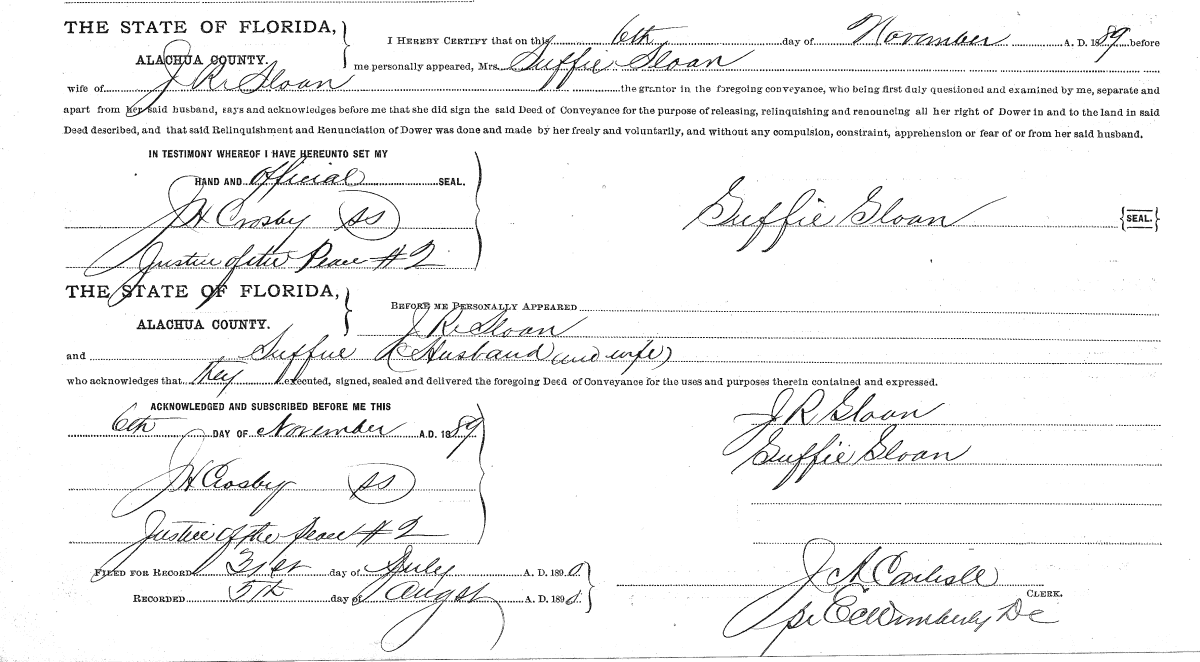 THE STATE OF FLORIDA,
ALACHUA COUNTY.
I HEREBY CERTIFY that on this 6th day of November A. D. 1889 before
me personally appeared, Mrs. Suffie Sloan
wife of J R Sloan the grantor in the foregoing conveyance, who being first duly questioned and examined by me, separate and
apart from her said husband, says and acknowledges before me that she did sign the said Deed of Conveyance for the purpose of releasing, relinquishing and renouncing all her right of Dower in and to the land in said
Deed described, and that said Relinquishment and Renunciation of Dower was done and made by her freely and voluntarily, and without any compulsion, constraint, apprehension or fear of or from her said husband.
IN TESTIMONY WHEREOF I HAVE HEREUNTO SET MY
HAND AND official SEAL.
J H Crosby SS
Justice of the Peace # 2
Suffie Sloan {SEAL.}
THE STATE OF FLORIDA,
ALACHUA COUNTY.
BEFORE ME PERSONALLY APPEARED
J R Sloan
and Suffie (Husband and wife)
who acknowledges that they executed, signed, sealed and delivered the foregoing Deed of Conveyance for the uses and purposes therein contained and expressed.
ACKNOWLEDGED AND SUBSCRIBED BEFORE ME THIS
6th DAY OF November A.D. 1889
J H Crosby SS
Justice of the Peace # 2
J R Sloan
Suffie Sloan
FILED FOR RECORD 31st day of July A. D. 1890
RECORDED 5th day of Augst A. D. 1890
J A Carlisle
CLERK.
pr E C Wimberly DC